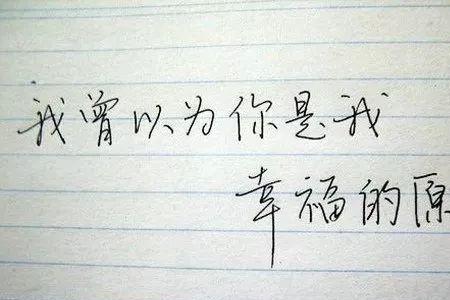 我曾以为你是我
幸福的原